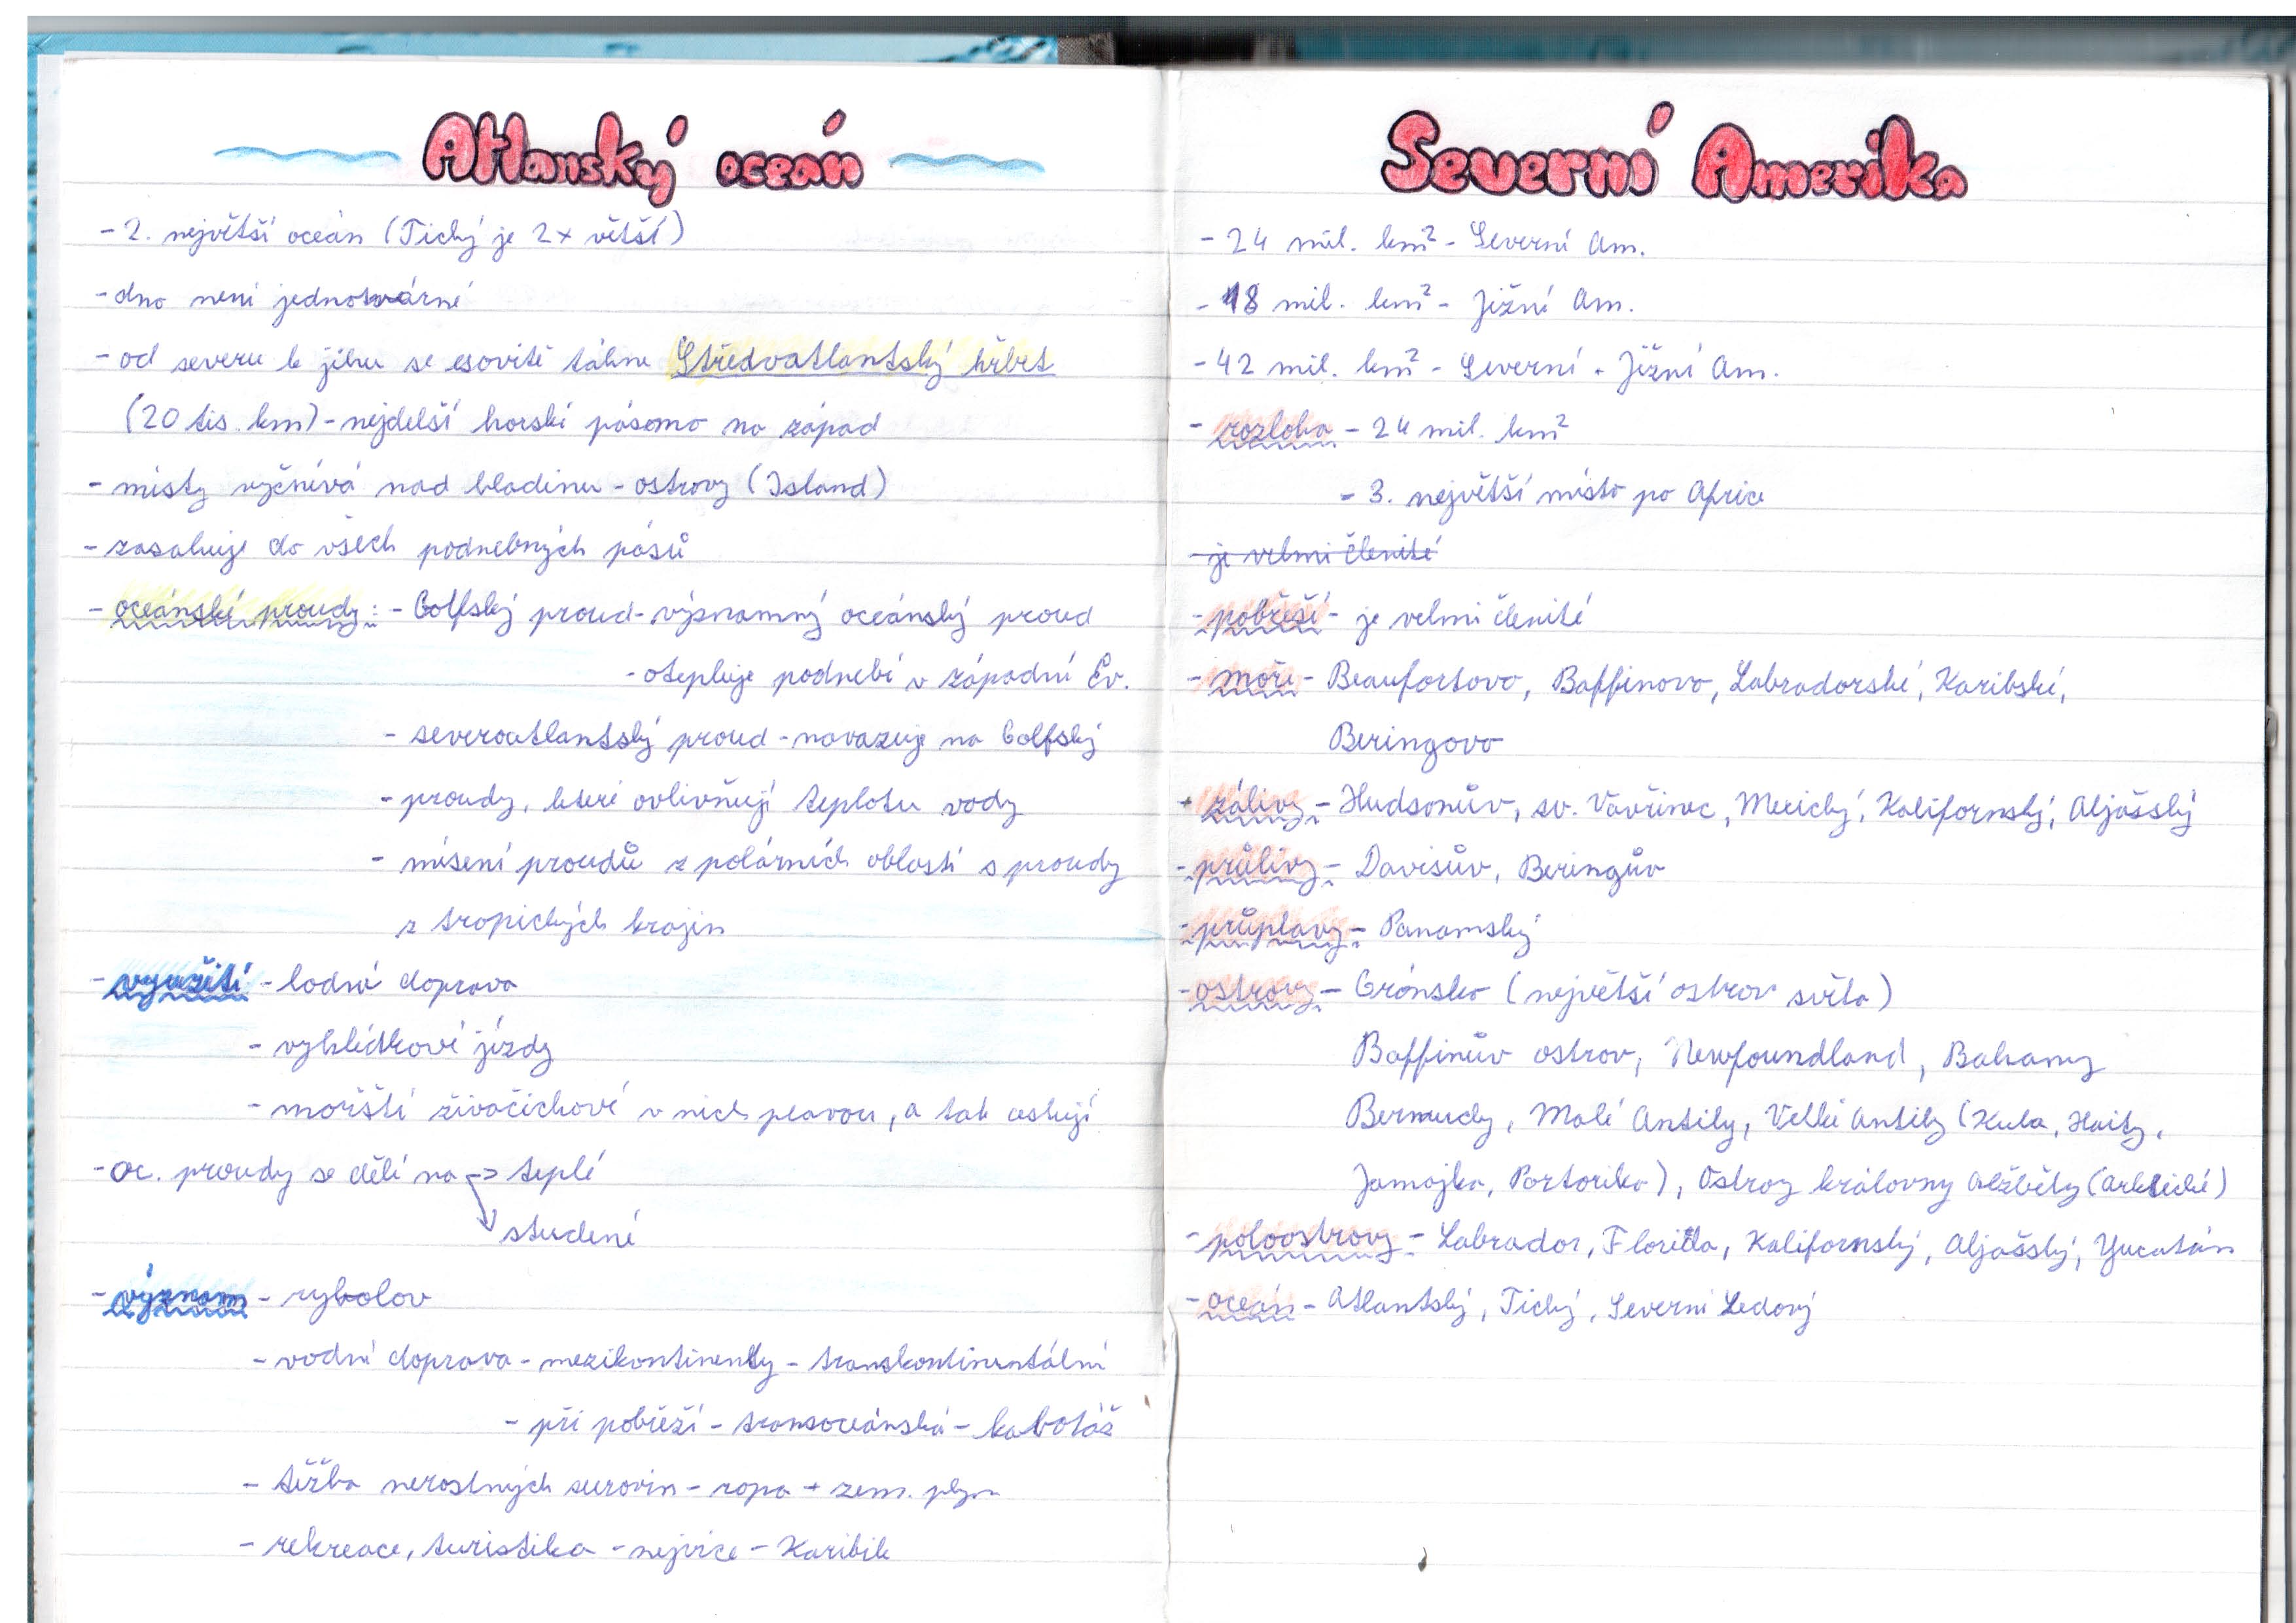 Atlanský oceán
- 2. největší oceán (Tichý je 2x větší)
- dno není jednotvárné
- od severu k jihu se esovitě táhne Středoatlantský hřbet
(20 tis. km) - nejdelší horské pásmo na západ
- místy vyčnívá nad hladinu - ostrovy (Island)
- zasahuje do všech podnebných pásů
- oceánské proudy: - Golfský proud - významný oceánský proud
- otepluje podnebí v západní Ev.
- severoatlantský proud - navazuje na Golfský
- proudy, které ovlivňují teplotu vody
- mísení proudů z polárních oblastí s proudy
z tropických krajin
- využití - lodní doprava
- vyhlídkové jízdy
- mořští živočichové v nich plavou, a tak cestují
- oc. proudy se dělí na -> teplé
studené
- význam - rybolov
- vodní doprava - mezikontinenty - transkontinentální
- při pobřeží - transoceánská - kabotáž
- těžba nerostných surovin - ropa + zem. plyn
- rekreace, turistika - nejvíce - Karibik
Severní Amerika
- 24 mil. km² - Severní Am.
- 18 mil. km² - Jižní Am.
- 42 mil. km² - Severní - Jižní Am.
- rozloha - 24 mil. km²
- 3. největší místo po Africe
- je velmi členité
- pobřeží - je velmi členité
- moře - Beaufortovo, Baffinovo, Labradorské, Karibské,
Beringovo
- zálivy - Hudsonův, sv. Vavřince, Mexický, Kalifornský, Aljašský
- průlivy - Davisův, Beringův
- průplavy - Panamský
- ostrovy - Grónsko (největší ostrov světa)
Baffinův ostrov, Newfoundland, Bahamy
Bermudy, Malé Antily, Velké Antily (Kuba, Haity,
Jamajka, Portoriko), Ostrovy královny Alžběty (arktické)
- poloostrovy - Labrador, Florida, Kalifornský, Aljašský, Yucatán
- oceán - Atlantský, Tichý, Severní Ledový